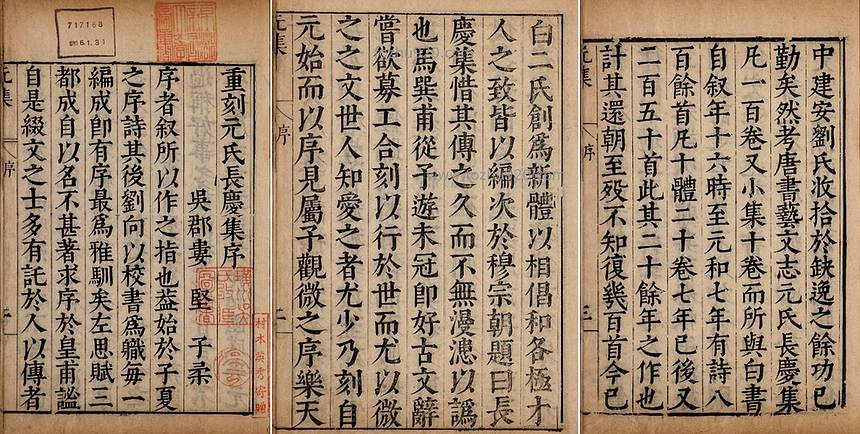 717168
重刻元氏長慶集序
吳郡婁 堅 子柔
序者叙所以作之指也葢始於子夏
之序詩其後劉向以校書爲職每一
編成卽有序最爲雅馴矣左思賦三
都成自以名不甚著求序於皇甫謐
自是綴文之士多有託於人以傳者
元集 序
白二氏創爲新體以相倡和各極才
人之致皆以編次於穆宗朝題曰長
慶集惜其傳之久而不無漫漶以譌
也馬巽甫從予遊未冠卽好古文辭
嘗欲募工合刻以行於世而尤以微
之之文世人知愛之者尤少乃刻自
元始而以序見屬予觀微之序樂天
元集 序 二
中建安劉氏收拾於缺逸之餘功已
勤矣然考唐書藝文志元氏長慶集
凢一百卷又小集十卷而所與白書
自叙年十六時至元和七年有詩八
百餘首凢十體二十卷七年已後又
二百五十首此其二十餘年之作也
計其還朝至殁不知復幾百首今已
元集 序 三